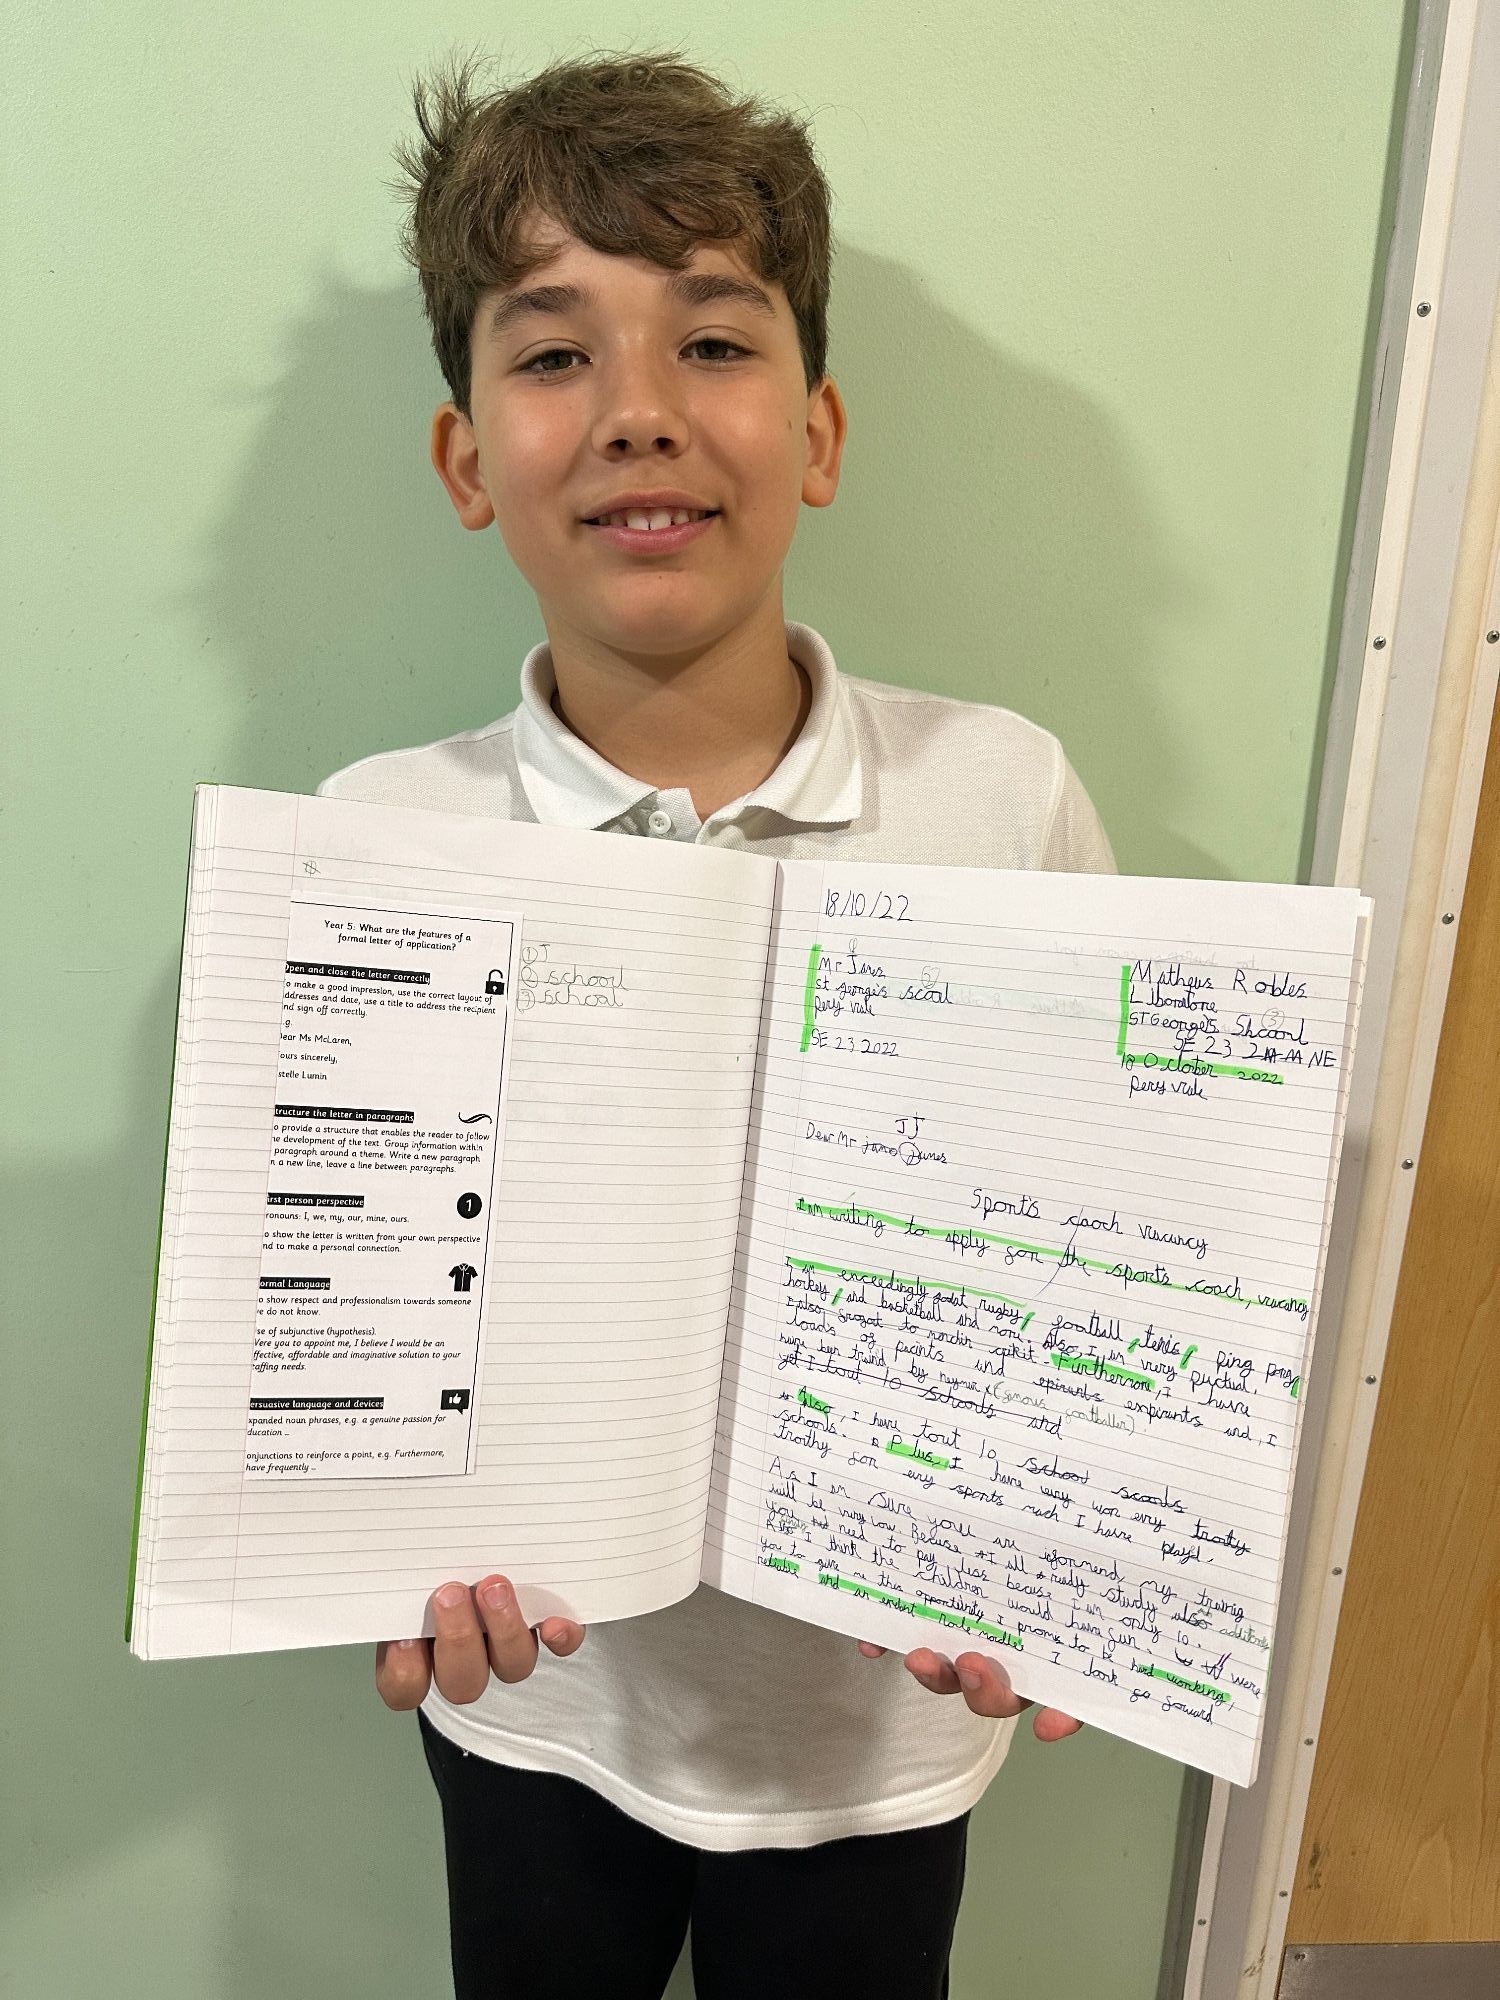 Year 5: What are the features of a
formal letter of application?
Open and close the letter correctly
o make a good impression, use the correct layout of
ddresses and date, use a title to address the recipient
nd sign off correctly.
.g.
ear Ms McLaren,
ours sincerely,
stelle Lumin
tructure the letter in paragraphs
o provide a structure that enables the reader to follow
he development of the text. Group information within
paragraph around a theme. Write a new paragraph
n a new line, leave a line between paragraphs.
irst person perspective
1
ronouns: I, we, my, our, mine, ours.
o show the letter is written from your own perspective
nd to make a personal connection.
ormal Language
o show respect and professionalism towards someone
ve do not know.
se of subjunctive (hypothesis).
Were you to appoint me, I believe I would be an
ffective, affordable and imaginative solution to your
taffing needs.
ersuasive language and devices
xpanded noun phrases, e.g. a genuine passion for
ducation ...
onjunctions to reinforce a point, e.g. Furthermore,
have frequently ...
① J
② schoorl
③ school
18/10/22
Mr James
st george's scorl
pery vale
SE 23 2022
Matheus Robles
ST George's Shcoorl
SE 23 2 NE
18 October 2022
pery vale
J j
Dear Mr james
Sport's coach vacancy
I am writing to apply for the sports coach, vacancy
I am exceedingly goodat rugby, football, tenis, ping pong,
hockey, and basketball and more. Also, I am very puctual.
Furthermore, I have
loads of
have ben traind by neymar (famous footballer).
yet I tout 10 schools and
Also, I have tout 10 school
schools. Plus, I have very won evry
trothy for evry sports mach I have playd.
As I am sure youll are informend, my traing
will be very low. Because I all ready study also
you need to pay less becuse I am only 10. additionly
I think the children would have fun. were
you to give me this opportunity I promis to be hard working,
reliable and an Role modle. I look forward